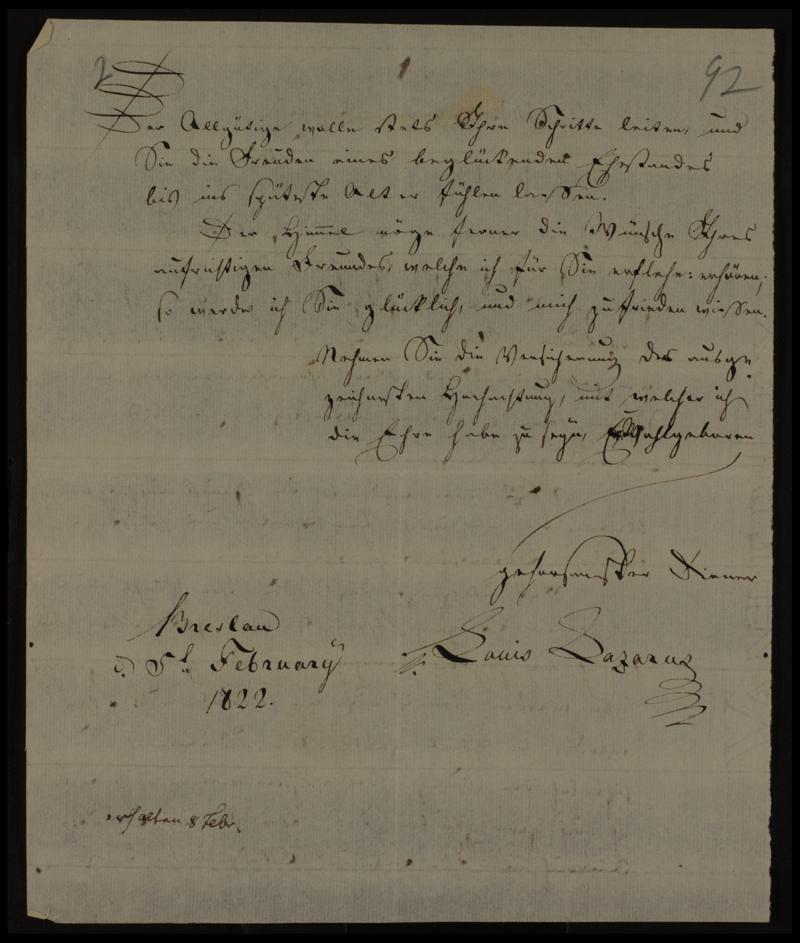 2 92
Der Allgütige wolle stets Ihre Schritte leiten, und
Sie die Freuden eines beglückenden Ehestandes
bis ins späteste Alter fühlen lassen.
Der Himmel möge ferner die Wünsche Ihres
aufrichtigen Freundes, welche ich für Sie erflehe: erhören;
so werde ich Sie glücklich, und mich zufrieden wissen.
Nehmen Sie die Versicherung der ausge
zeichnesten Hochachtung, mit welcher ich
die Ehre habe zu seÿn, Wohlgeboren
gehorsamster Diener
Breslau
d. 5t. Februarÿ
1822.
Louis Lazarus
erhalten 8 Febr.